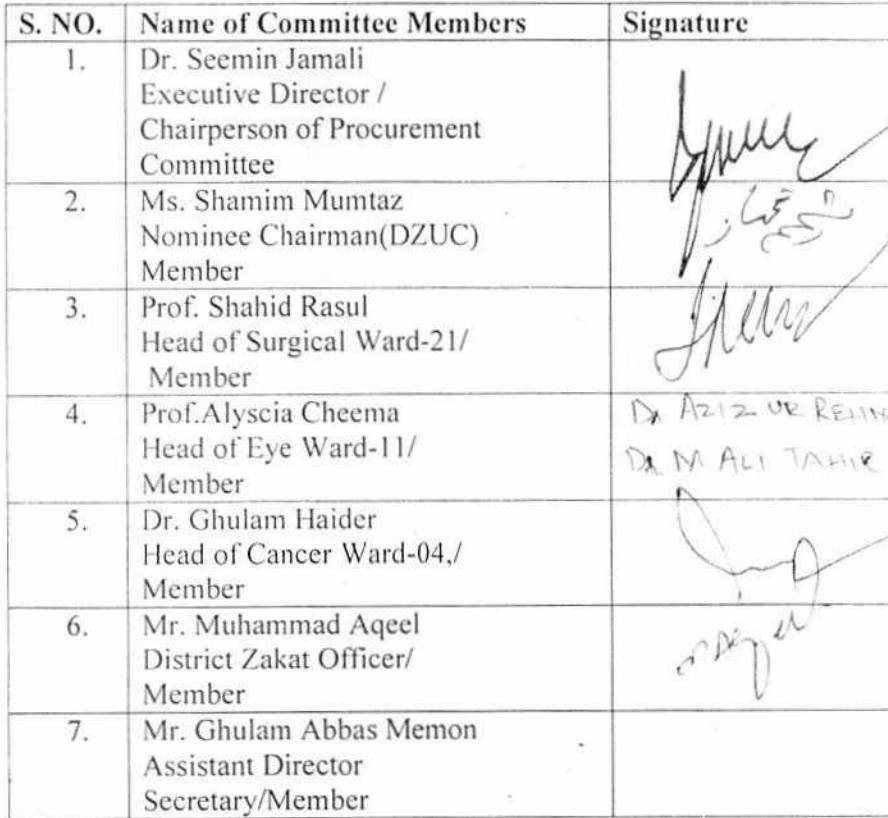 S. NO. Name of Committee Members Signature
1. Dr. Seemin Jamali
Executive Director /
Chairperson of Procurement
Committee
2. Ms. Shamim Mumtaz
Nominee Chairman(DZUC)
Member
شمیم ممتاز
3. Prof. Shahid Rasul
Head of Surgical Ward-21/
Member
4. Prof.Alyscia Cheema
Head of Eye Ward-11/
Member
Dr AZIZ UR
Dr M ALI TAHIR
5. Dr. Ghulam Haider
Head of Cancer Ward-04,/
Member
6. Mr. Muhammad Aqeel
District Zakat Officer/
Member
7. Mr. Ghulam Abbas Memon
Assistant Director
Secretary/Member